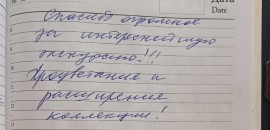 Дата
Date
Спасибо огромное
за интереснейшую
экскурсию!!!
Процветания и
расширения
коллекции!